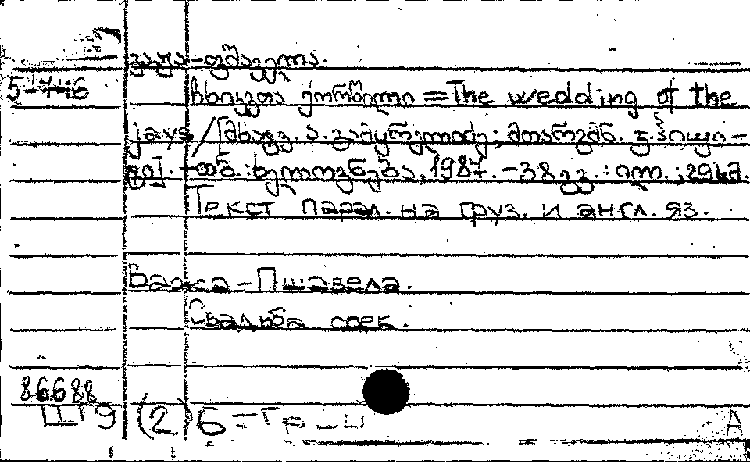 ვაჟა-ფშაველა.
5-746 ჩხიკვთა ქორწილი = The wedding of the
jays / [მხატვ. ა. ; თარგმნ.
- თბ.: ხელოვნება, 1987. - 38 გვ. : ილ. ; 29სმ.
Текст парал. на груз. и англ. яз.
Важа-Пшавела.
Свадьба соек.
86688
Ш9 (2)6=Гр
А